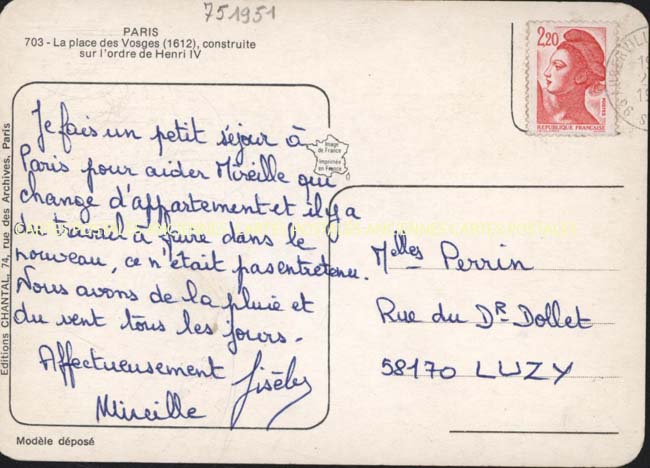 751951
PARIS
703 - La place des Vosges (1612), construite
sur l'ordre de Henri IV
2,20
POSTES
REPUBLIQUE FRANÇAISE
Image
de France
Imprimée
en France
Je fais un petit séjour à
Paris pour aider Mireille qui
change d'appartement et il y a
du travail à faire dans le
nouveau, ce n'était pas entretenu.
Nous avons de la pluie et
du vent tous les jours.
Affectueusement Gisèle
Mireille
Melles Perrin
Rue du Dr Dollet
58170 LUZY
Editions CHANTAL, 74, rue des Archives, Paris
Modèle déposé